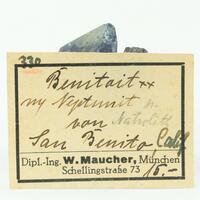 330
Benitoit xx
m/ Neptunit u.
von Natrolith
San Benito, Calif.
Dipl.-Ing. W. Maucher, München
Schellingstraße 73
15.-